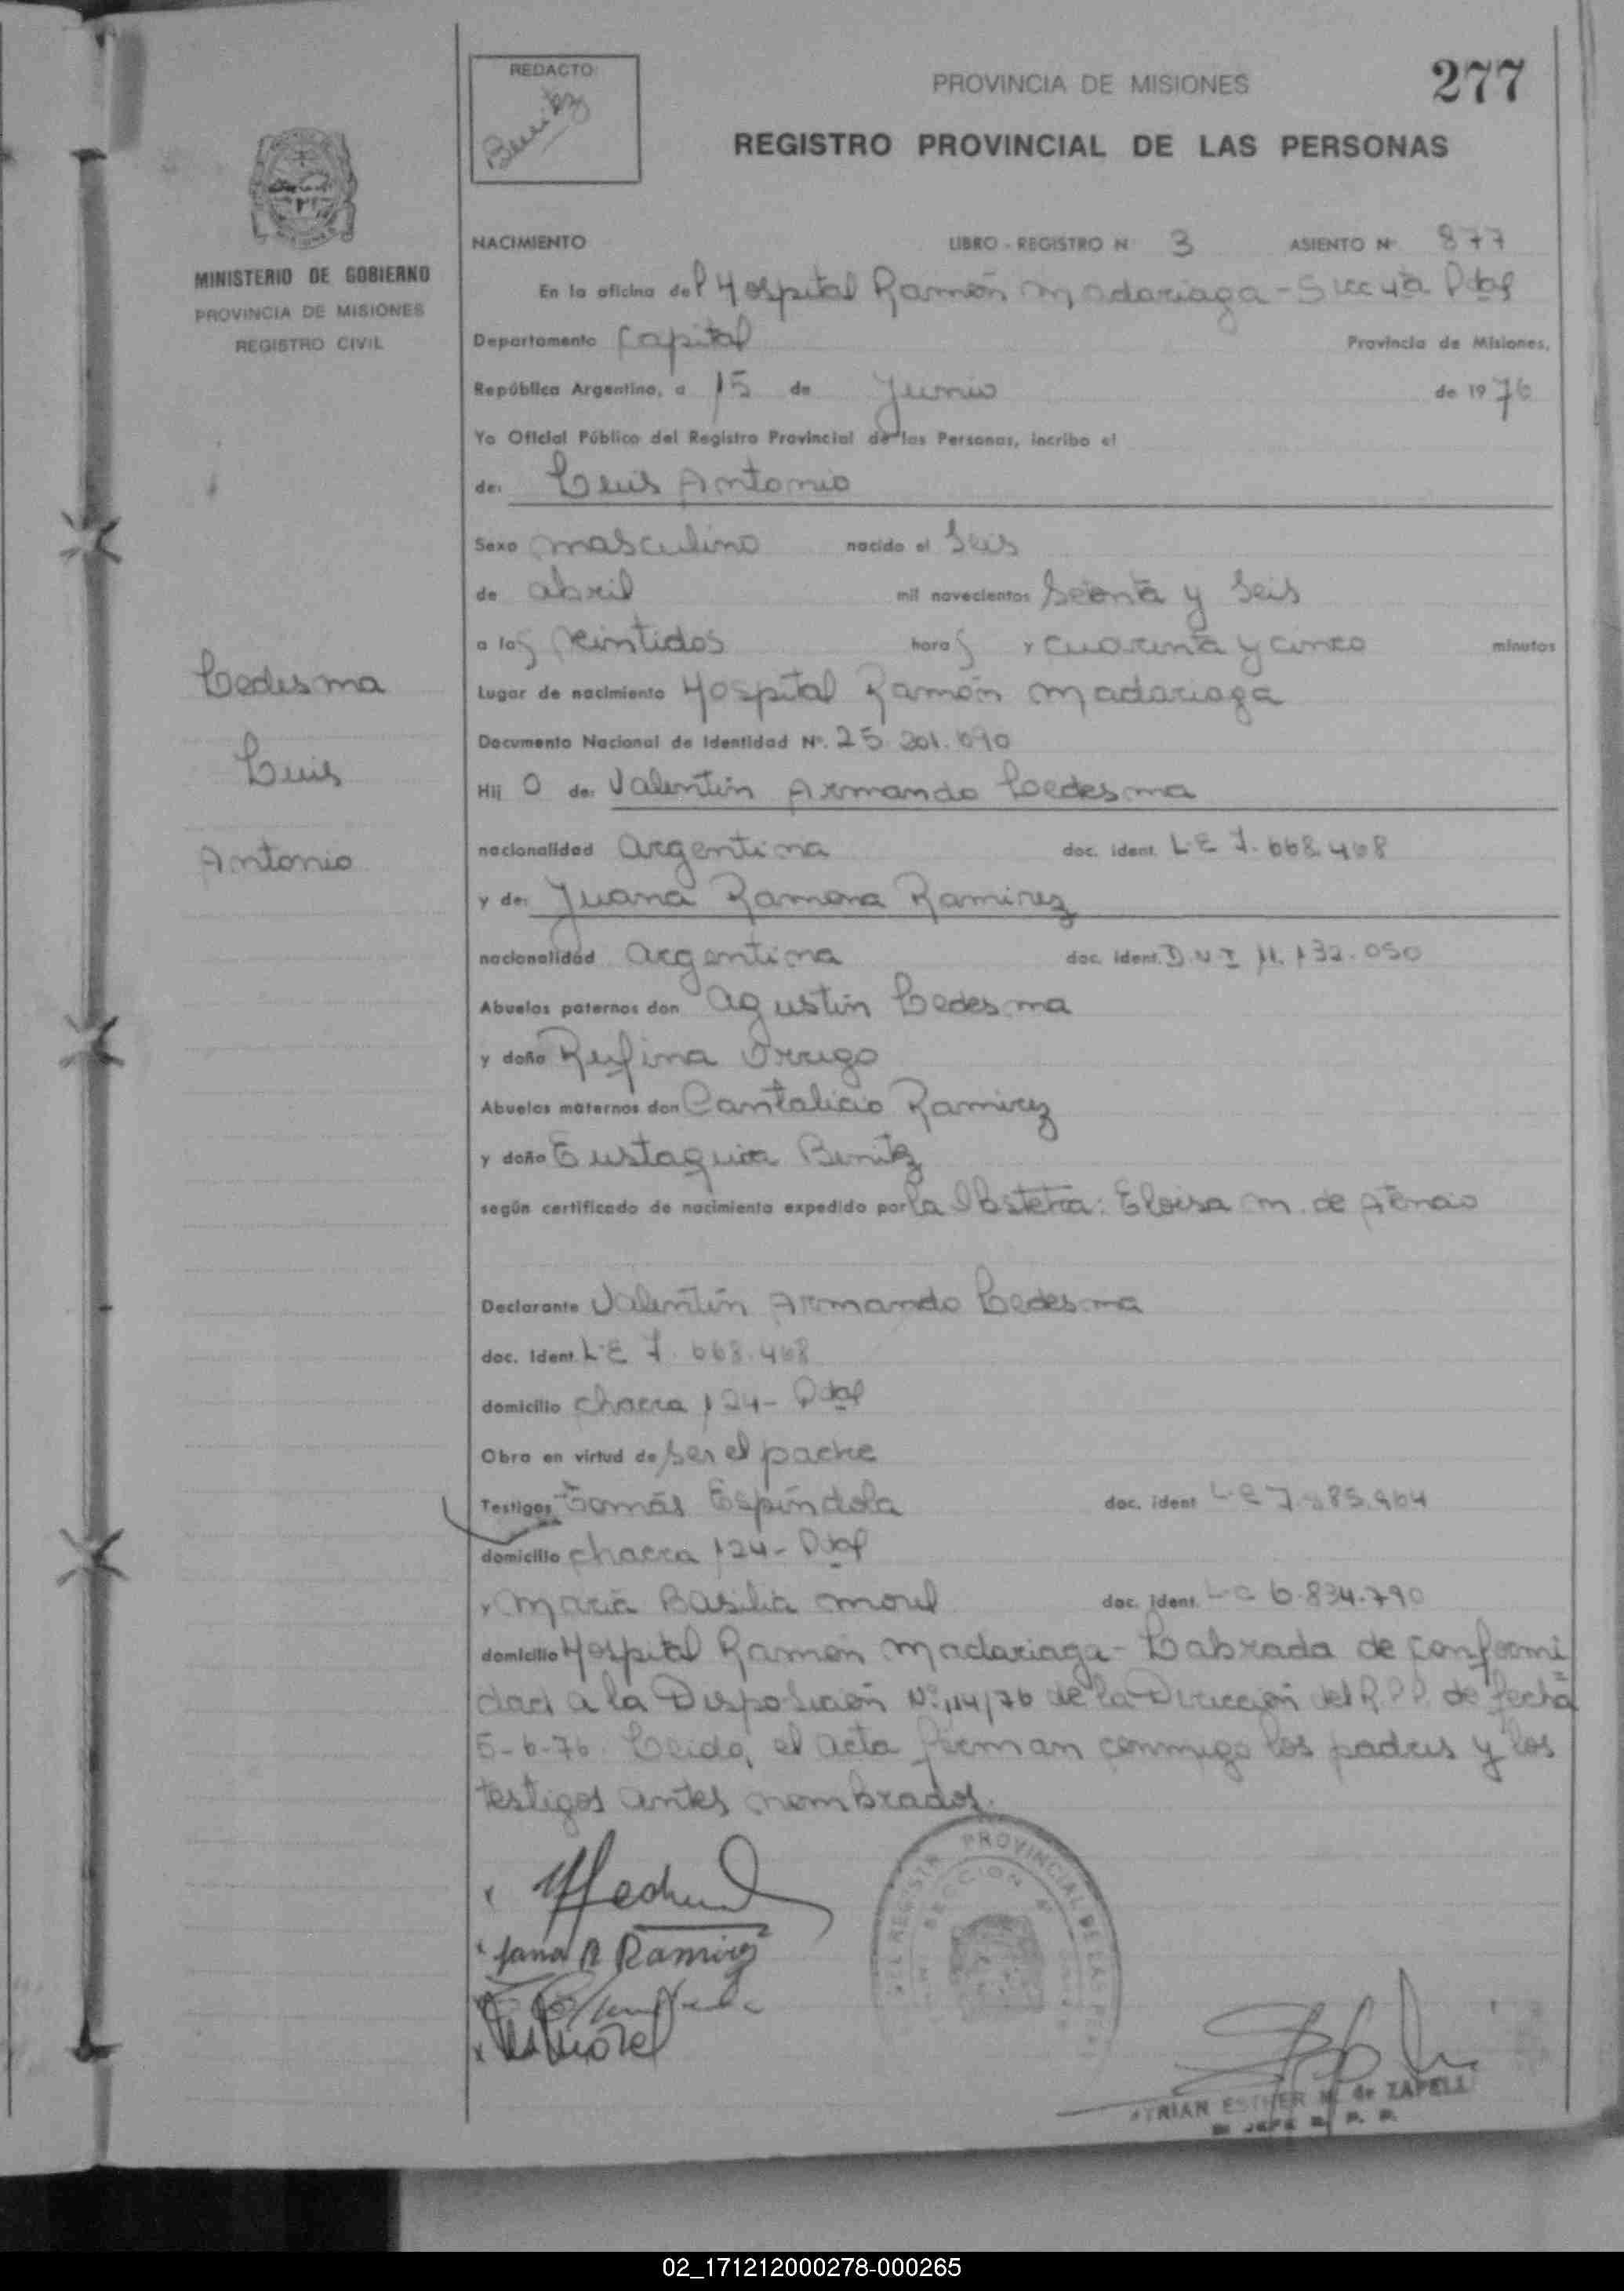 REDACTO:
Benitez
PROVINCIA DE MISIONES
277
REGISTRO PROVINCIAL DE LAS PERSONAS
MINISTERIO DE GOBIERNO
PROVINCIA DE MISIONES
REGISTRO CIVIL
NACIMIENTO LIBRO - REGISTRO Nº 3 ASIENTO Nº 877
En la oficina del Hospital Ramón Madariaga - Secc 4ta Pdas
Departamento Capital Provincia de Misiones,
República Argentina, a 15 de Junio de 1976
Yo Oficial Público del Registro Provincial de las Personas, incribo el
de: Luis Antonio
Sexo masculino nacido el Seis
de abril mil novecientos Setenta y Seis
a las veintidos horas y cuarenta y cinco minutos
Lugar de nacimiento Hospital Ramón Madariaga
Documento Nacional de Identidad Nº. 25.201.690
Hij o de: Valentín Armando Ledesma
nacionalidad argentina doc. ident. L.E 7.668.468
y de: Juana Ramona Ramirez
nacionalidad argentina doc. ident. D.N.I 11.132.050
Abuelos paternos don Agustín Ledesma
y doña Rufina Orrego
Abuelos maternos don Cantalicio Ramirez
y doña Eustaquia Benitez
según certificado de nacimiento expedido por la Obstetra: Eloisa M. de
Declarante Valentín Armando Ledesma
doc. Ident. L.E 7.668.468
domicilio chacra 124 - Pdas
Obra en virtud de ser el padre
Testigos Tomás Espíndola doc. ident L.E 7.585.964
domicilio chacra 124 - Pdas
y María Basilia Morel doc. ident. L.C 6.834.790
domicilio Hospital Ramón Madariaga - Labrada de conformi
dad a la Disposición Nº 114/76 de la Dirección del R.P.P. de fecha
5-6-76. Leida, el acta firman conmigo los padres y los
testigos antes nombrados.
Ledesma
Luis
Antonio
Juana R Ramirez
Morel
REGISTRO PROVINCIAL DE LAS
SECCION
ESTHER M. de ZAPELLI
JEFE R. P. P.
02_171212000278-000265